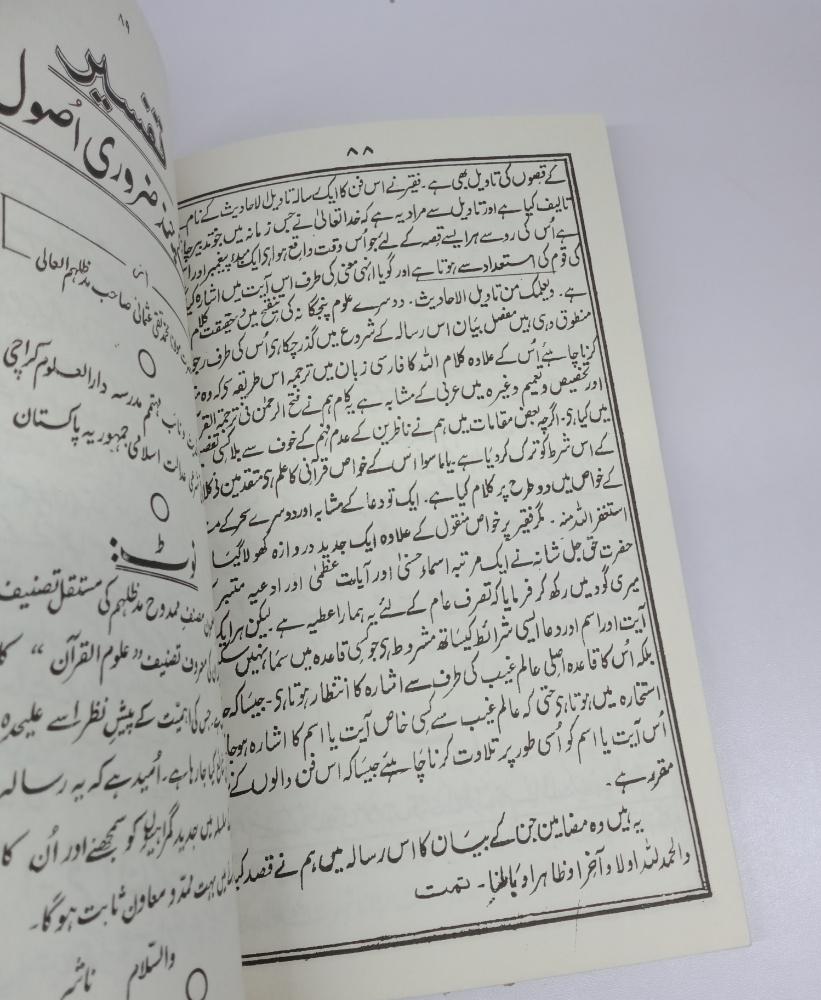 ۸۸
کے قصوں کی تاویل بھی ہے۔ فقیر نے اس فن کا ایک رسالہ تاویل الاحادیث کے نام
تالیف کیا ہے اور تاویل سے مراد یہ ہے کہ خدا تعالیٰ نے جس زمانہ میں جو تدبیر
ہے اُس کی رو سے ہر ایسے قصہ کے لئے جو اُس وقت واقع ہوا ہی ایک مبدء پیغمبر اور
کی قوم کی استعداد سے ہوتا ہے اور گویا انہی معنی کی طرف اس آیت میں اشارہ
ہے۔ ویعلمک من تاویل الاحادیث۔ دوسرے علوم پنجگانہ کی تنقیح میں درحقیقت کلام
منطوق وہی ہیں مفصل بیان اس رسالہ کے شروع میں گذر چکا ہی اُس کی طرف
کرنا چاہئے اُس کے علاوہ کلام اللہ کا فارسی زبان میں ترجمہ اس طریقہ سی کہ وہ
اور تخصیص و تعمیم وغیرہ میں عربی کے مشابہ ہے یہ کام ہم نے فتح الرحمٰن فی ترجمۃ
میں کیا ہی اگرچہ بعض مقامات میں ہم نے ناظرین کے عدم فہم کے خوف سے بلا کسی
کے اس شرط کو ترک کر دیا ہے یا ماسوا اس کے خواص قرآنی کا علم ہی متقدمین نی
کے خواص میں دو طرح پر کلام کیا ہے۔ ایک تو دعا کے مشابہ اور دوسرے سحر کے
استغفر اللہ منہ۔ مگر فقیر پر خواص منقول کے علاوہ ایک جدید دروازہ کھولا گیا
حضرت حق جل شانہ نے ایک مرتبہ اسماء حسنیٰ اور آیات عظمیٰ اور ادعیہ
میری گود میں رکھ کر فرمایا کہ تصرف عام کے لئے یہ ہمارا عطیہ ہے۔ لیکن ہر ایک
آیت اور اسم اور دعا ایسی شرائط کیساتھ مشروط ہی جو کسی قاعدہ میں سما نہیں
بلکہ اُس کا قاعدہ اصلی عالم غیب کی طرف سے اشارہ کا انتظار ہوتا ہی۔ جیسا کہ
استخارہ میں ہوتا ہی حتی کہ عالم غیب سے کسی خاص آیت یا اسم کا اشارہ
اُس آیت یا اسم کو اُسی طور پر تلاوت کرنا چاہیئے جیسا کہ اس فن والوں کے
مقرر ہے۔
یہ ہیں وہ مضامین جن کے بیان کا اس رسالہ میں ہم نے قصد
والحمد للہ اولا و آخرا و ظاہرا و باطنا۔ تمت
۸۹
تفسیر
ضروری اصول
محمد تقی عثمانی صاحب مدظلہم العالی
مہتمم مدرسہ دارالعلوم کراچی
عدالت اسلامی جمہوریہ پاکستان
نوٹ:
مصنف ممدوح مدظلہم کی مستقل تصنیف
تصنیف "علوم القرآن"
جس کی اہمیت کے پیش نظر اسے علیحدہ
کیا جا رہا ہے۔ اُمید ہے کہ یہ رسالہ
میں جدید گمراہیوں کو سمجھنے اور اُن کا
میں بہت ممد و معاون ثابت ہوگا۔
والسّلام
ناشر